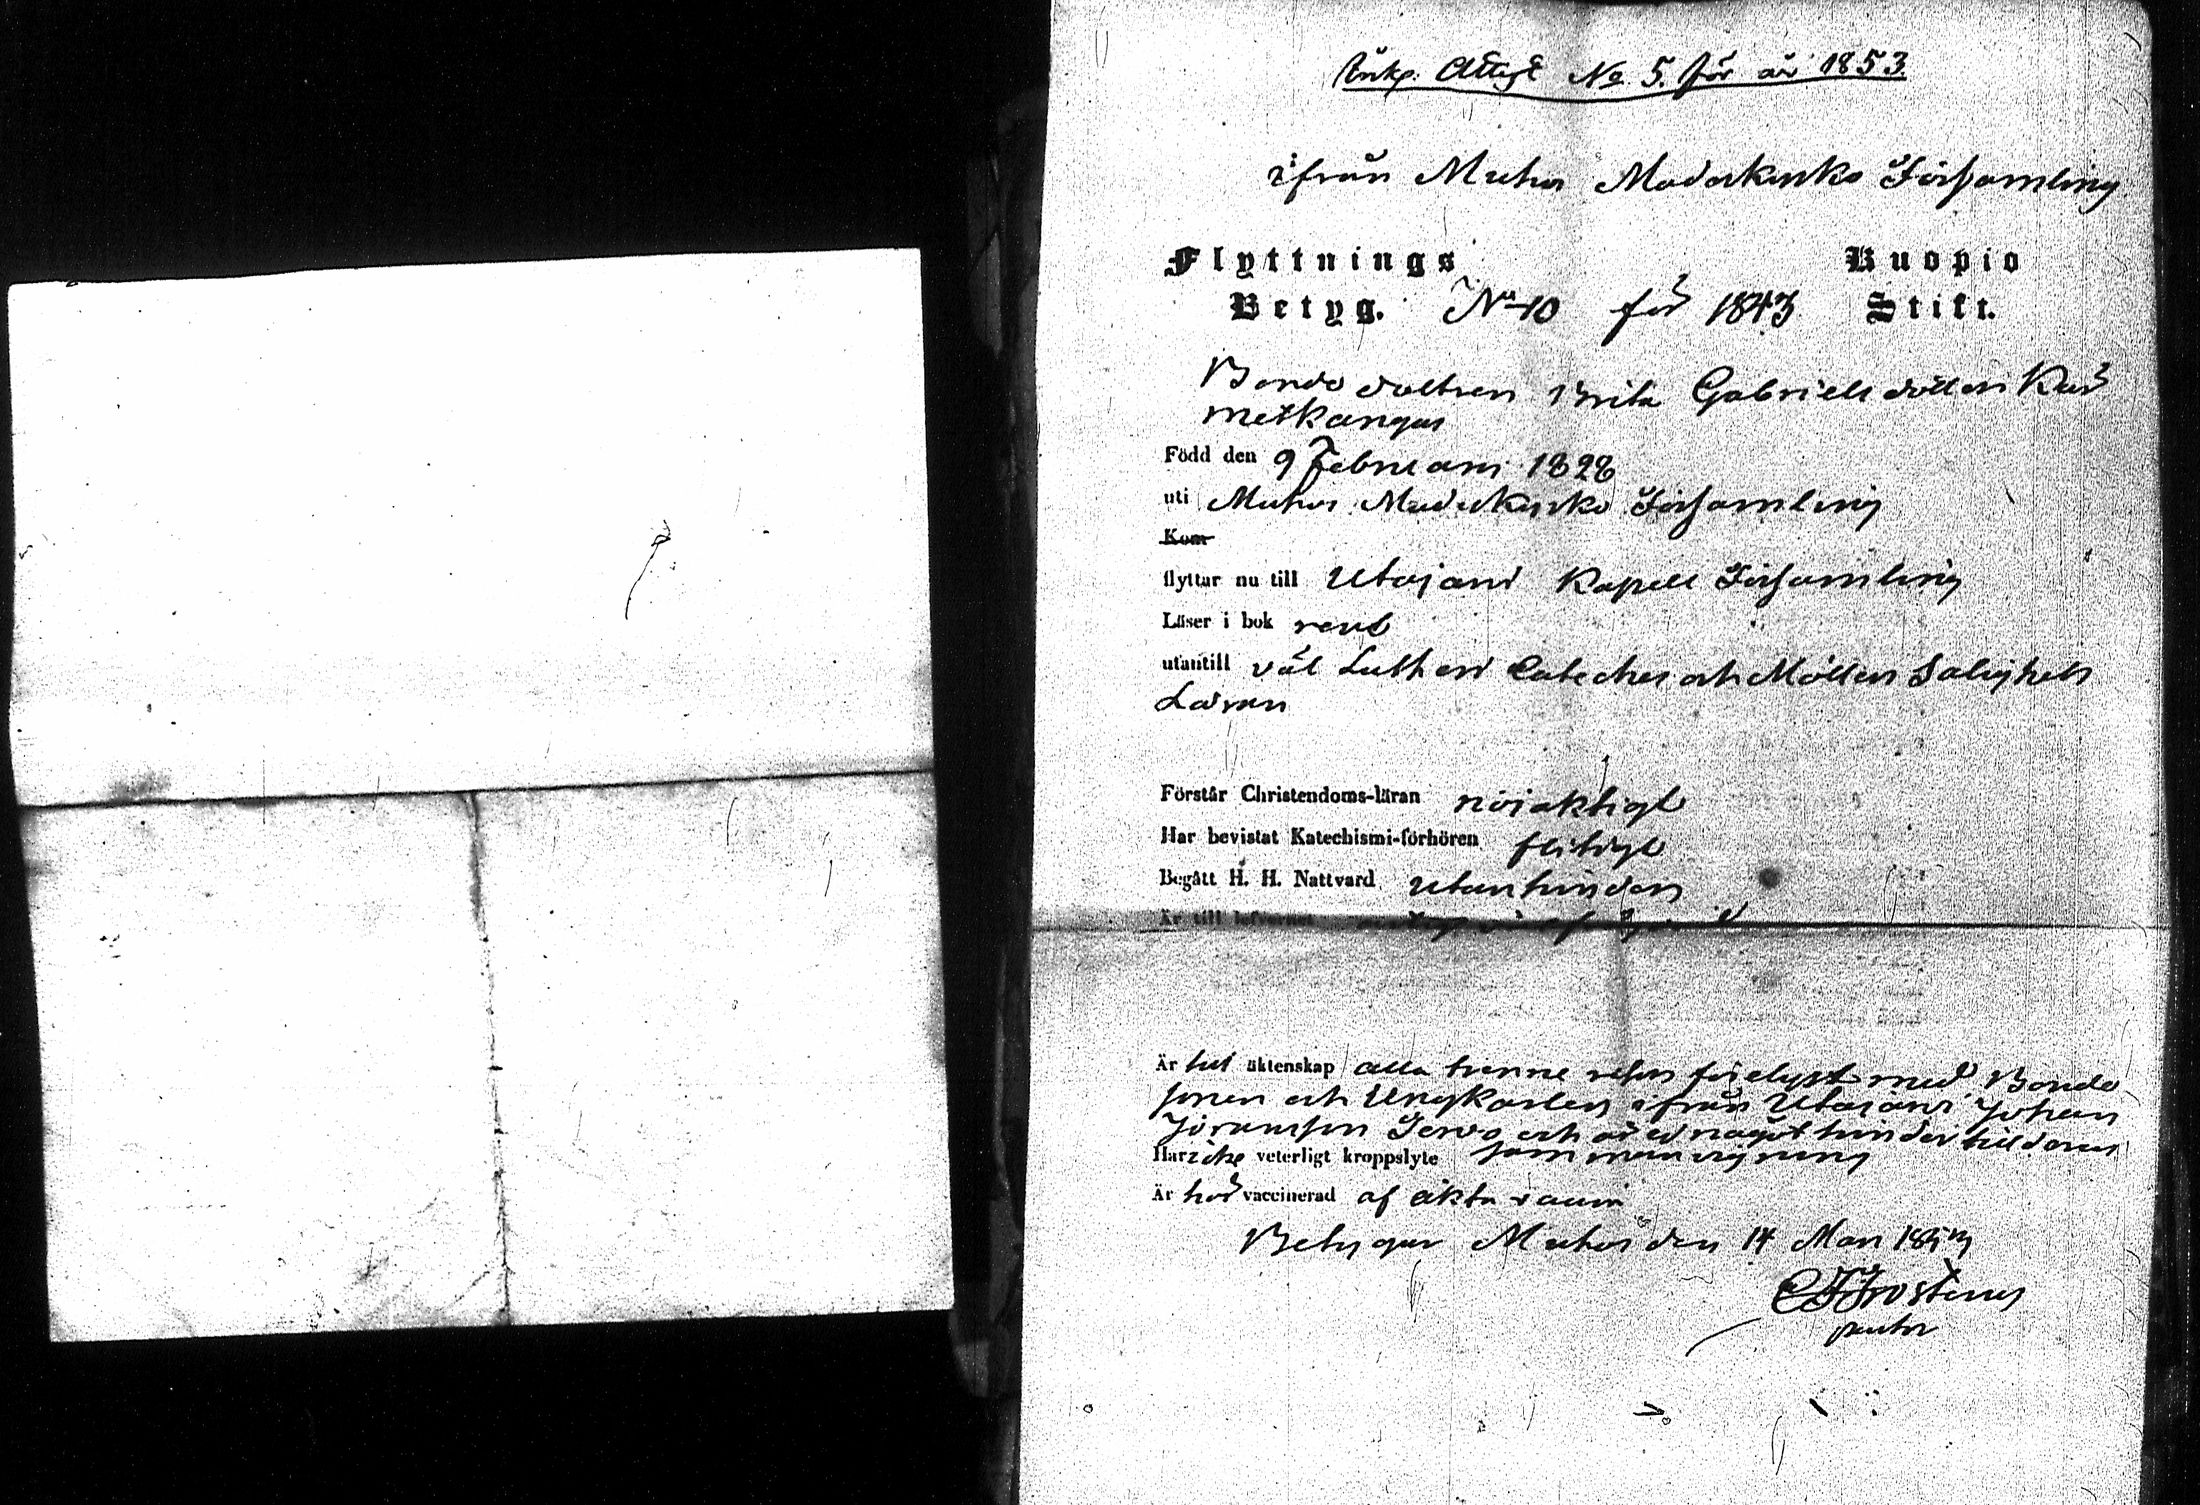 Ink. Attest No 5. för år 1853.
ifrån Muhos Moderkyrko Församling
Flyttnings Kuopio
Betyg. No 10 för 1853 Stift.
Bonde dottren Brita Gabrielsdotter Kur
metkangas
Född den 9 Februari 1828
uti Muhos Moderkyrko Församling
Kom
flyttar nu till Utajärvi Kapell Församling
Läser i bok rent
utantill väl Lutheri Cateches och Möllers Salighets
Läran
Förstår Christendoms-läran nöjaktigt
Har bevistat Katechismi-förhören flitigt
Begått H. H. Nattvard utan hinder
Är till lefvernet
Är till äktenskap alla trenne resor förelyst med Bonde
sonen och Ungkarlen ifrån Utajärvi Johan
Jöransson och är ej något hinder till deras
Har icke veterligt kroppslyte sammanvigning
Är har vaccinerad af äkta vaccin
Betygar Muhos den 14 Mars 1853
C F Frosterus
pastor